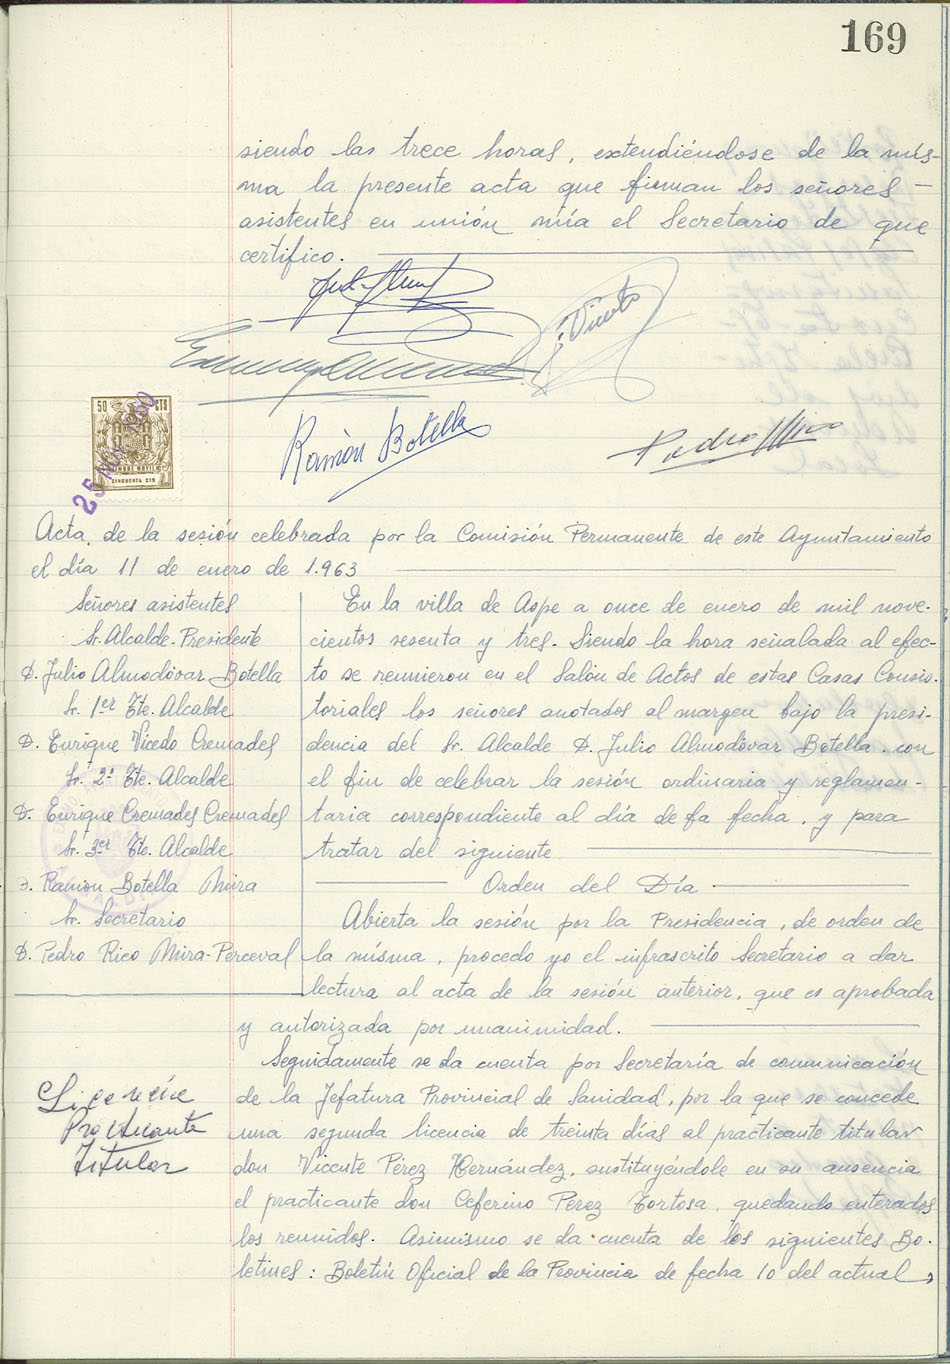 169
siendo las trece horas, extendiéndose de la mís-
ma la presente acta que firman los señores —
asistentes en unión mía el Secretario de que
certifico.
Vicedo
Ramón Botella
Pedro Rico
50 CTS
CINCUENTA CTS
25 NOV 1960
Acta, de la sesión celebrada por la Comisión Permanente de este Ayuntamiento
el día 11 de enero de 1.963
Señores asistentes
Sr. Alcalde-Presidente
D. Julio Almodóvar Botella
Sr. 1er Tte. Alcalde
D. Enrique Vicedo Cremades
Sr. 2º Tte. Alcalde
D. Enrique Cremades Cremades
Sr. 3er Tte. Alcalde
D. Ramon Botella Mira
Sr. Secretario
D. Pedro Rico Mira-Perceval
En la villa de Aspe a once de enero de mil nove-
cientos sesenta y tres. Siendo la hora señalada al efec-
to se reunieron en el Salón de Actos de estas Casas Consis-
toriales los señores anotados al margen bajo la presi-
dencia del Sr. Alcalde D. Julio Almodóvar Botella. con
el fin de celebrar la sesión ordinaria y reglamen-
taria correspondiente al día de la fecha, y para
tratar del siguiente
Orden del Día
Abierta la sesión por la Presidencia, de orden de
la mísma, procedo yo el infrascrito Secretario a dar
lectura al acta de la sesión anterior, que es aprobada
y autorizada por unanimidad.
Licencia
Practicante
Titular
Seguidamente se da cuenta por Secretaría de comunicación
de la Jefatura Provincial de Sanidad, por la que se concede
una segunda licencia de treinta días al practicante titular
don Vicente Pérez Hernández, sustituyéndole en su ausencia
el practicante don Ceferino Pérez Tortosa, quedando enterados
los reunidos. Asimismo se da cuenta de los siguientes Bo-
letines: Boletín Oficial de la Provincia de fecha 10 del actual,